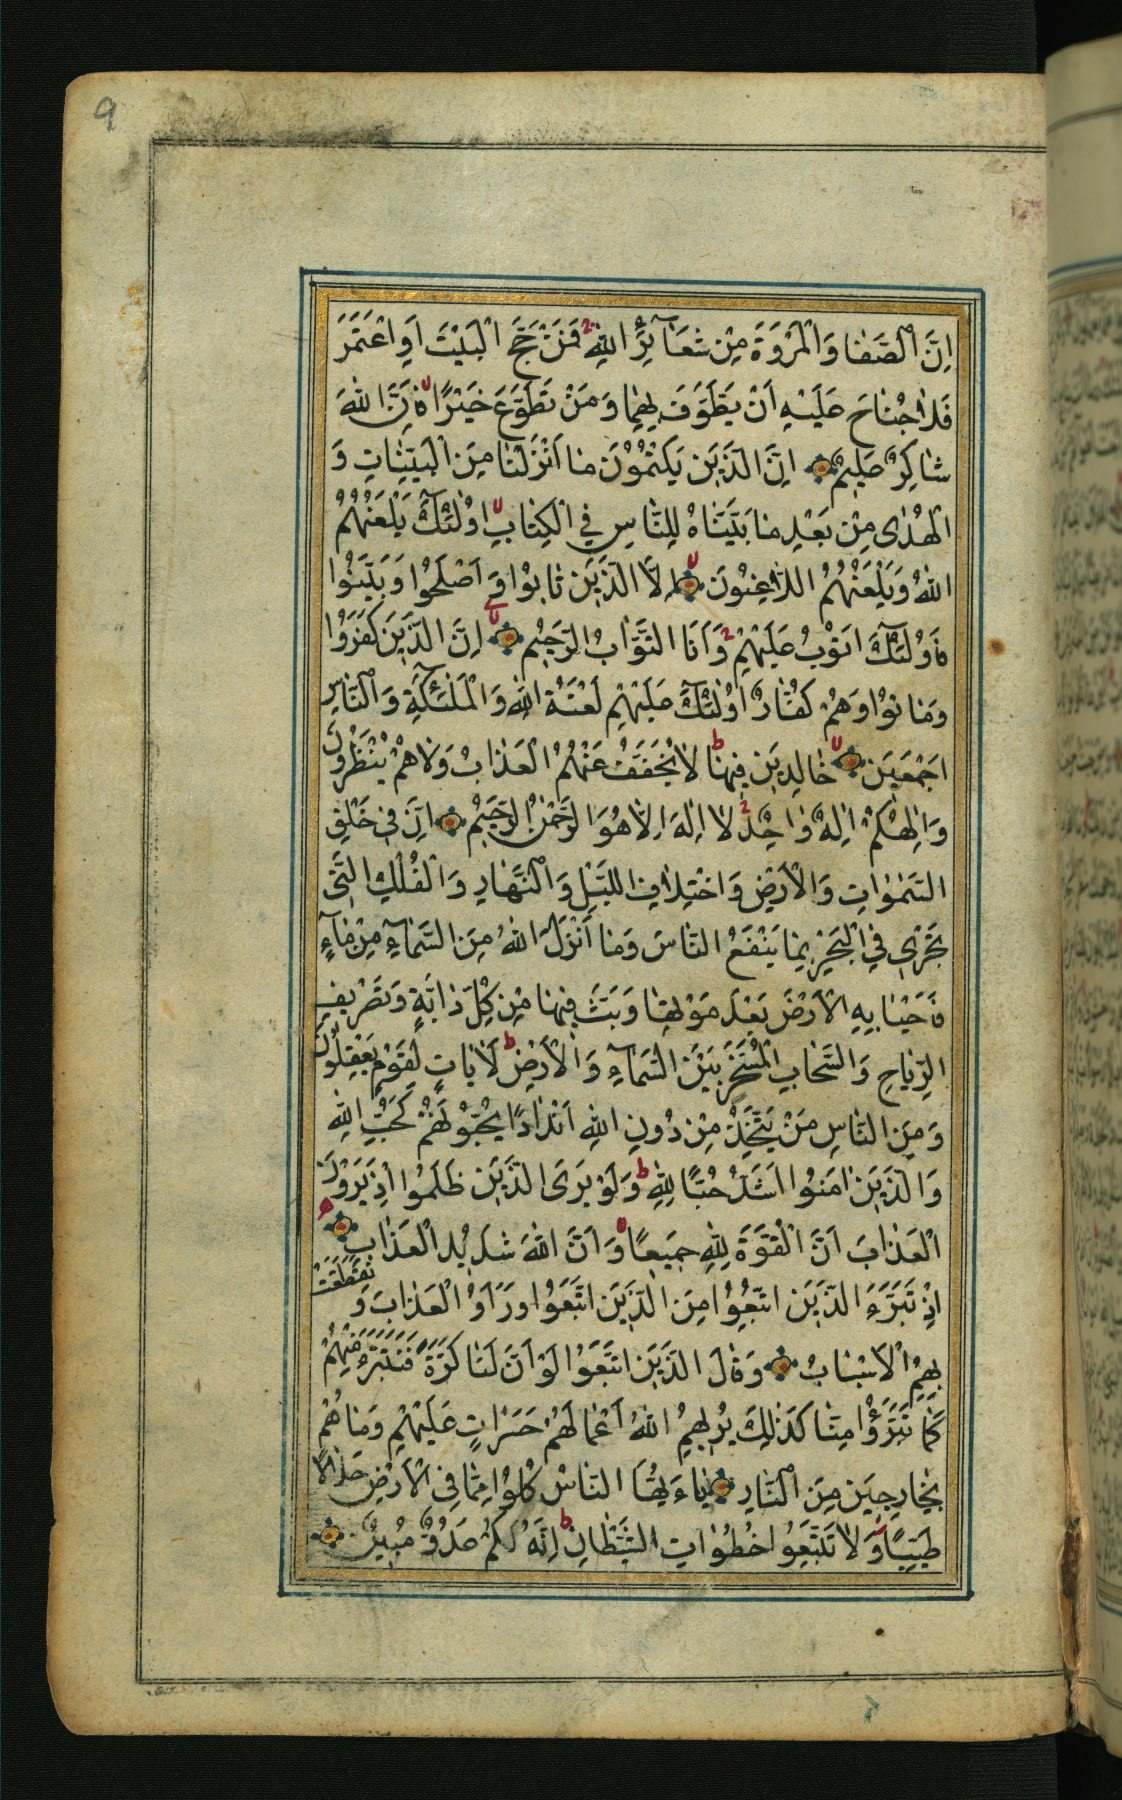 9
اِنَّ الصَّفٰا وَالْمَرْوَةَ مِنْ شَعٰآئِرِ اللهِ فَمَنْ حَجَّ الْبَيْتَ اَوِ اعْتَمَرَ
فَلاٰ جُنٰاحَ عَلَيْهِ اَنْ يَطَّوَّفَ بِهِمٰا وَمَنْ تَطَوَّعَ خَيْرًا فَاِنَّ اللهَ
شٰاكِرٌ عَلِيمٌ اِنَّ الَّذِينَ يَكْتُمُوْنَ مٰا اَنْزَلْنٰا مِنَ الْبَيِّنٰاتِ وَ
الْهُدٰى مِنْ بَعْدِ مٰا بَيَّنَّاهُ لِلنّٰاسِ فِي الْكِتٰابِ اوُلٰئِكَ يَلْعَنُهُمُ
اللهُ وَيَلْعَنُهُمُ اللّٰاعِنُونَ اِلَّا الَّذِينَ تٰابوُا وَ اَصْلَحُوا وَبَيَّنُوا
فَاوُلٰئِكَ اَتوُبُ عَلَيْهِمْ وَاَنَا التَّوّٰابُ الرَّحِيُم اِنَّ الَّذِينَ كَفَرُوا
وَمٰا توُا وَهُمْ كُفّٰارٌ اوُلٰئِكَ عَلَيْهِمْ لَعْنَةُ اللهِ وَالْمَلٰئِكَةِ وَالنّٰاسِ
اَجْمَعِينَ خٰالِدِينَ فِيهٰا لاٰ يُخَفَّفُ عَنْهُمُ الْعَذٰابُ وَلاٰ هُمْ يُنْظَرُونَ
وَاِلٰهُكُمْ اِلٰهٌ وٰاحِدٌ لاٰ اِلٰهَ اِلاّٰ هُوَ الرَّحْمٰنُ الرَّحِيُم اِنَّ فِي خَلْقِ
السَّمٰوٰاتِ وَالْاَرْضِ وَاخْتِلاٰفِ اللَّيْلِ وَالنَّهٰارِ وَالْفُلْكِ الَّتِي
تَجْرِي فِي الْبَحْرِ بِمٰا يَنْفَعُ النّٰاسَ وَمٰا اَنْزَلَ اللهُ مِنَ السَّمٰآءِ مِنْ مٰآءٍ
فَاَحْيٰا بِهِ الْاَرْضَ بَعْدَ مَوْتِهٰا وَبَثَّ فِيهٰا مِنْ كُلِّ دٰابَّةٍ وَتَصْرِيفِ
الرِّيٰاحِ وَالسَّحٰابِ الْمُسَخَّرِ بَيْنَ السَّمٰآءِ وَالْاَرْضِ لَاٰيٰاتٍ لِقَوْمٍ يَعْقِلُونَ
وَمِنَ النّٰاسِ مَنْ يَتَّخِذُ مِنْ دُونِ اللهِ اَنْدٰادًا يُحِبّوُنَهُمْ كَحُبِّ اللهِ
وَالَّذِينَ اٰمَنُوا اَشَدُّ حُبًّا لِلّٰهِ وَلَوْ يَرَى الَّذِينَ ظَلَموُا اِذْ يَرَوْنَ
الْعَذٰابَ اَنَّ الْقُوَّةَ لِلّٰهِ جَمِيعًا وَاَنَّ اللهَ شَدِيُد الْعَذٰابِ
اِذْ تَبَرَّءَ الَّذِينَ اتُّبِعُوا مِنَ الَّذِينَ اتَّبَعُوا وَرَاَوُا الْعَذٰابَ وَ تَقَطَّعَتْ
بِهِمُ الْاَسْبٰابُ وَقٰالَ الَّذِينَ اتَّبَعُوا لَوْ اَنَّ لَنٰا كَرَّةً فَنَتَبَرَّءَ مِنْهُمْ
كَمٰا تَبَرَّؤُا مِنّٰا كَذٰلِكَ يُرِيهِمُ اللهُ اَعْمٰالَهُمْ حَسَرٰاتٍ عَلَيْهِمْ وَمٰا هُمْ
بِخٰارِجِينَ مِنَ النّٰارِ يٰاءَيُّهَا النّٰاسُ كُلُوا مِمّٰا فِي الْاَرْضِ حَلاٰلًا
طَيِّبًا وَلاٰ تَتَّبِعُوا خُطُوٰاتِ الشَّيْطٰانِ اِنَّهُ لَكُمْ عَدُوٌّ مُبِينٌ